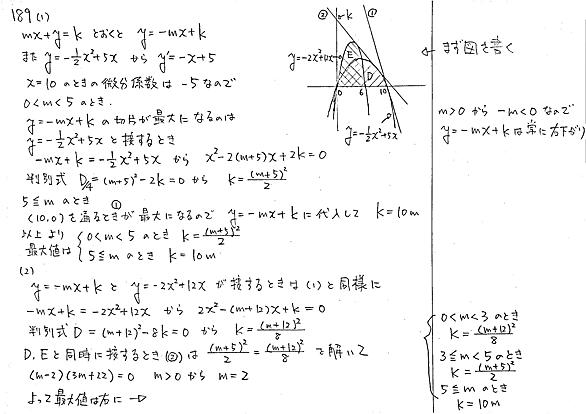 189 (1)
mx+y=k とおくと y=-mx+k
また y=-1/2x²+5x から y'=-x+5
x=10 のときの微分係数は -5なので
0<m<5 のとき.
y=-mx+k の切片が最大になるのは
y=-1/2x²+5x と接するとき
-mx+k=-1/2x²+5x から x²-2(m+5)x+2k=0
判別式 D/4=(m+5)²-2k=0 から k=(m+5)²/2
5≦m のとき ①
(10,0)を通るときが最大になるので y=-mx+k に代入して k=10m
以上より
最大値は { 0<m<5 のとき k=(m+5)²/2
5≦m のとき k=10m
(2)
y=-mx+k と y=-2x²+12x が接するときは (1)と同様に
-mx+k=-2x²+12x から 2x²-(m+12)x+k=0
判別式 D=(m+12)²-8k=0 から k=(m+12)²/8
D, Eと同時に接するとき(②)は (m+5)²/2=(m+12)²/8 を解いて
(m-2)(3m+22)=0 m>0 から m=2
よって最大値は右に →
② k ①
y=-2x²+12x
E D
0 6 10
y=-1/2x²+5x
← まず図を書く
m>0 から -m<0 なので
y=-mx+k は常に右下がり
0<m<3 のとき
k=(m+12)²/8
3≦m<5 のとき
k=(m+5)²/2
5≦m のとき
k=10m